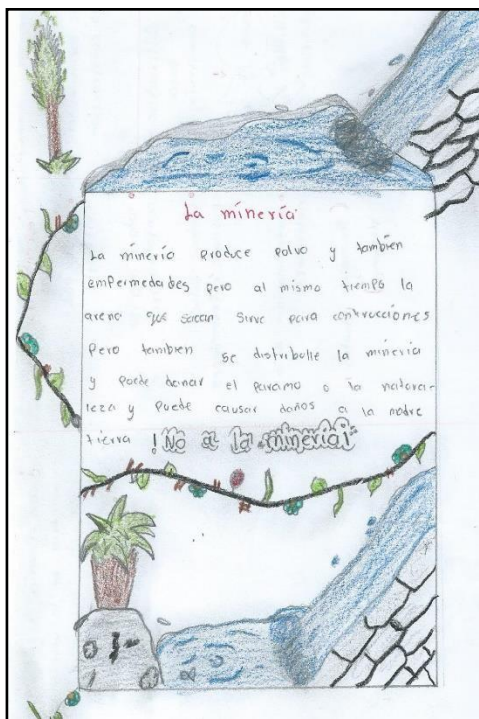 La minería
La minería produce polvo y tambien
empermedades pero al mismo tiempo la
arena que sacan sirve para contrucciones
Pero tambien se distribulle la minería
y puede dañar el paramo o la natora-
leza y puede causar daños a la madre
tierra ! No a la minería¡